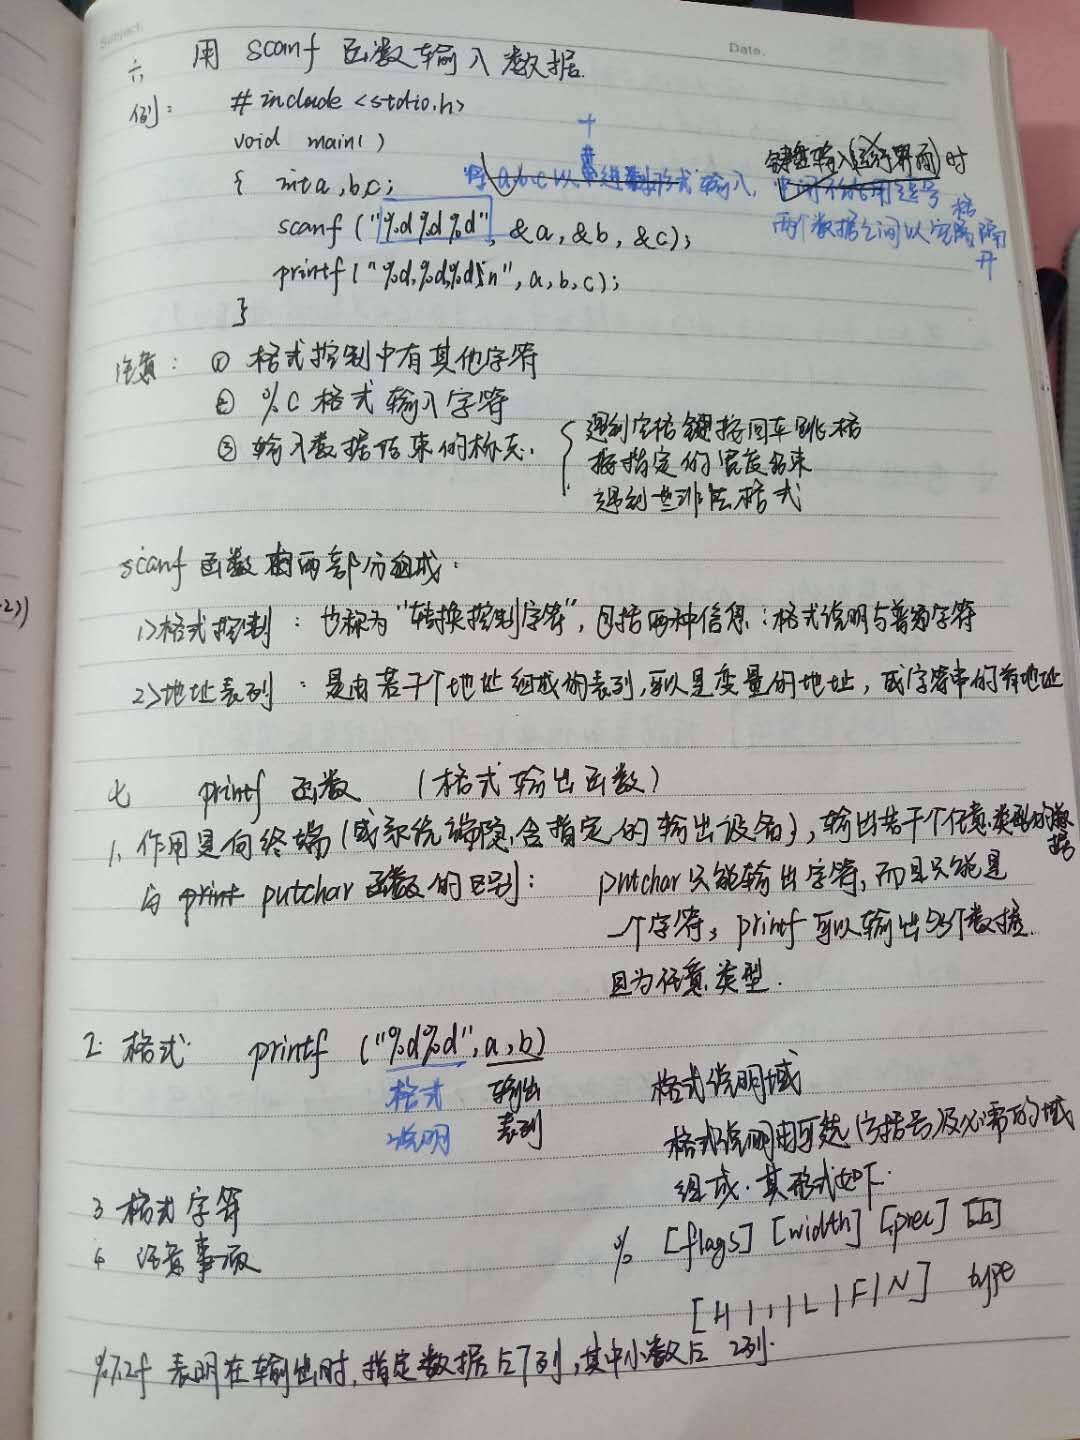 Subject.
Date.
六 用 scanf 函数输入数据.
例: #include <stdio.h>
void main()
{ int a,b,c;
将a,b,c以十进制形式输入,
键盘输入(运行界面)时
两个数据之间以空格隔开
scanf ("%d%d%d", &a, &b, &c);
printf ("%d,%d,%d\n", a, b, c);
}
注意: ① 格式控制中有其他字符
② %c 格式输入字符
③ 输入数据结束的标志.
遇到空格键按回车跳格
按指定的宽度结束
遇到非法格式
scanf 函数由两部分组成:
1>格式控制 : 也称为"转换控制字符", 包括两种信息:格式说明与普通字符
2>地址表列 : 是由若干个地址组成的表列,可以是变量的地址, 或字符串的首地址
2))
七 printf 函数 (格式输出函数)
1. 作用是向终端(或系统隐含指定的输出设备), 输出若干个任意类型的数据
与 print putchar 函数的区别: putchar 只能输出字符, 而且只能是
一个字符, printf 可以输出多个数据.
且为任意类型.
2. 格式 printf ("%d%d", a, b)
格式说明
输出表列
格式说明域
格式说明由可选(方括号)及必需的域
组成. 其形式如下:
% [flags] [width] [.prec] [h]
type
3 格式字符
4 注意事项
%7.2f 表明在输出时, 指定数据占7列, 其中小数占 2列.